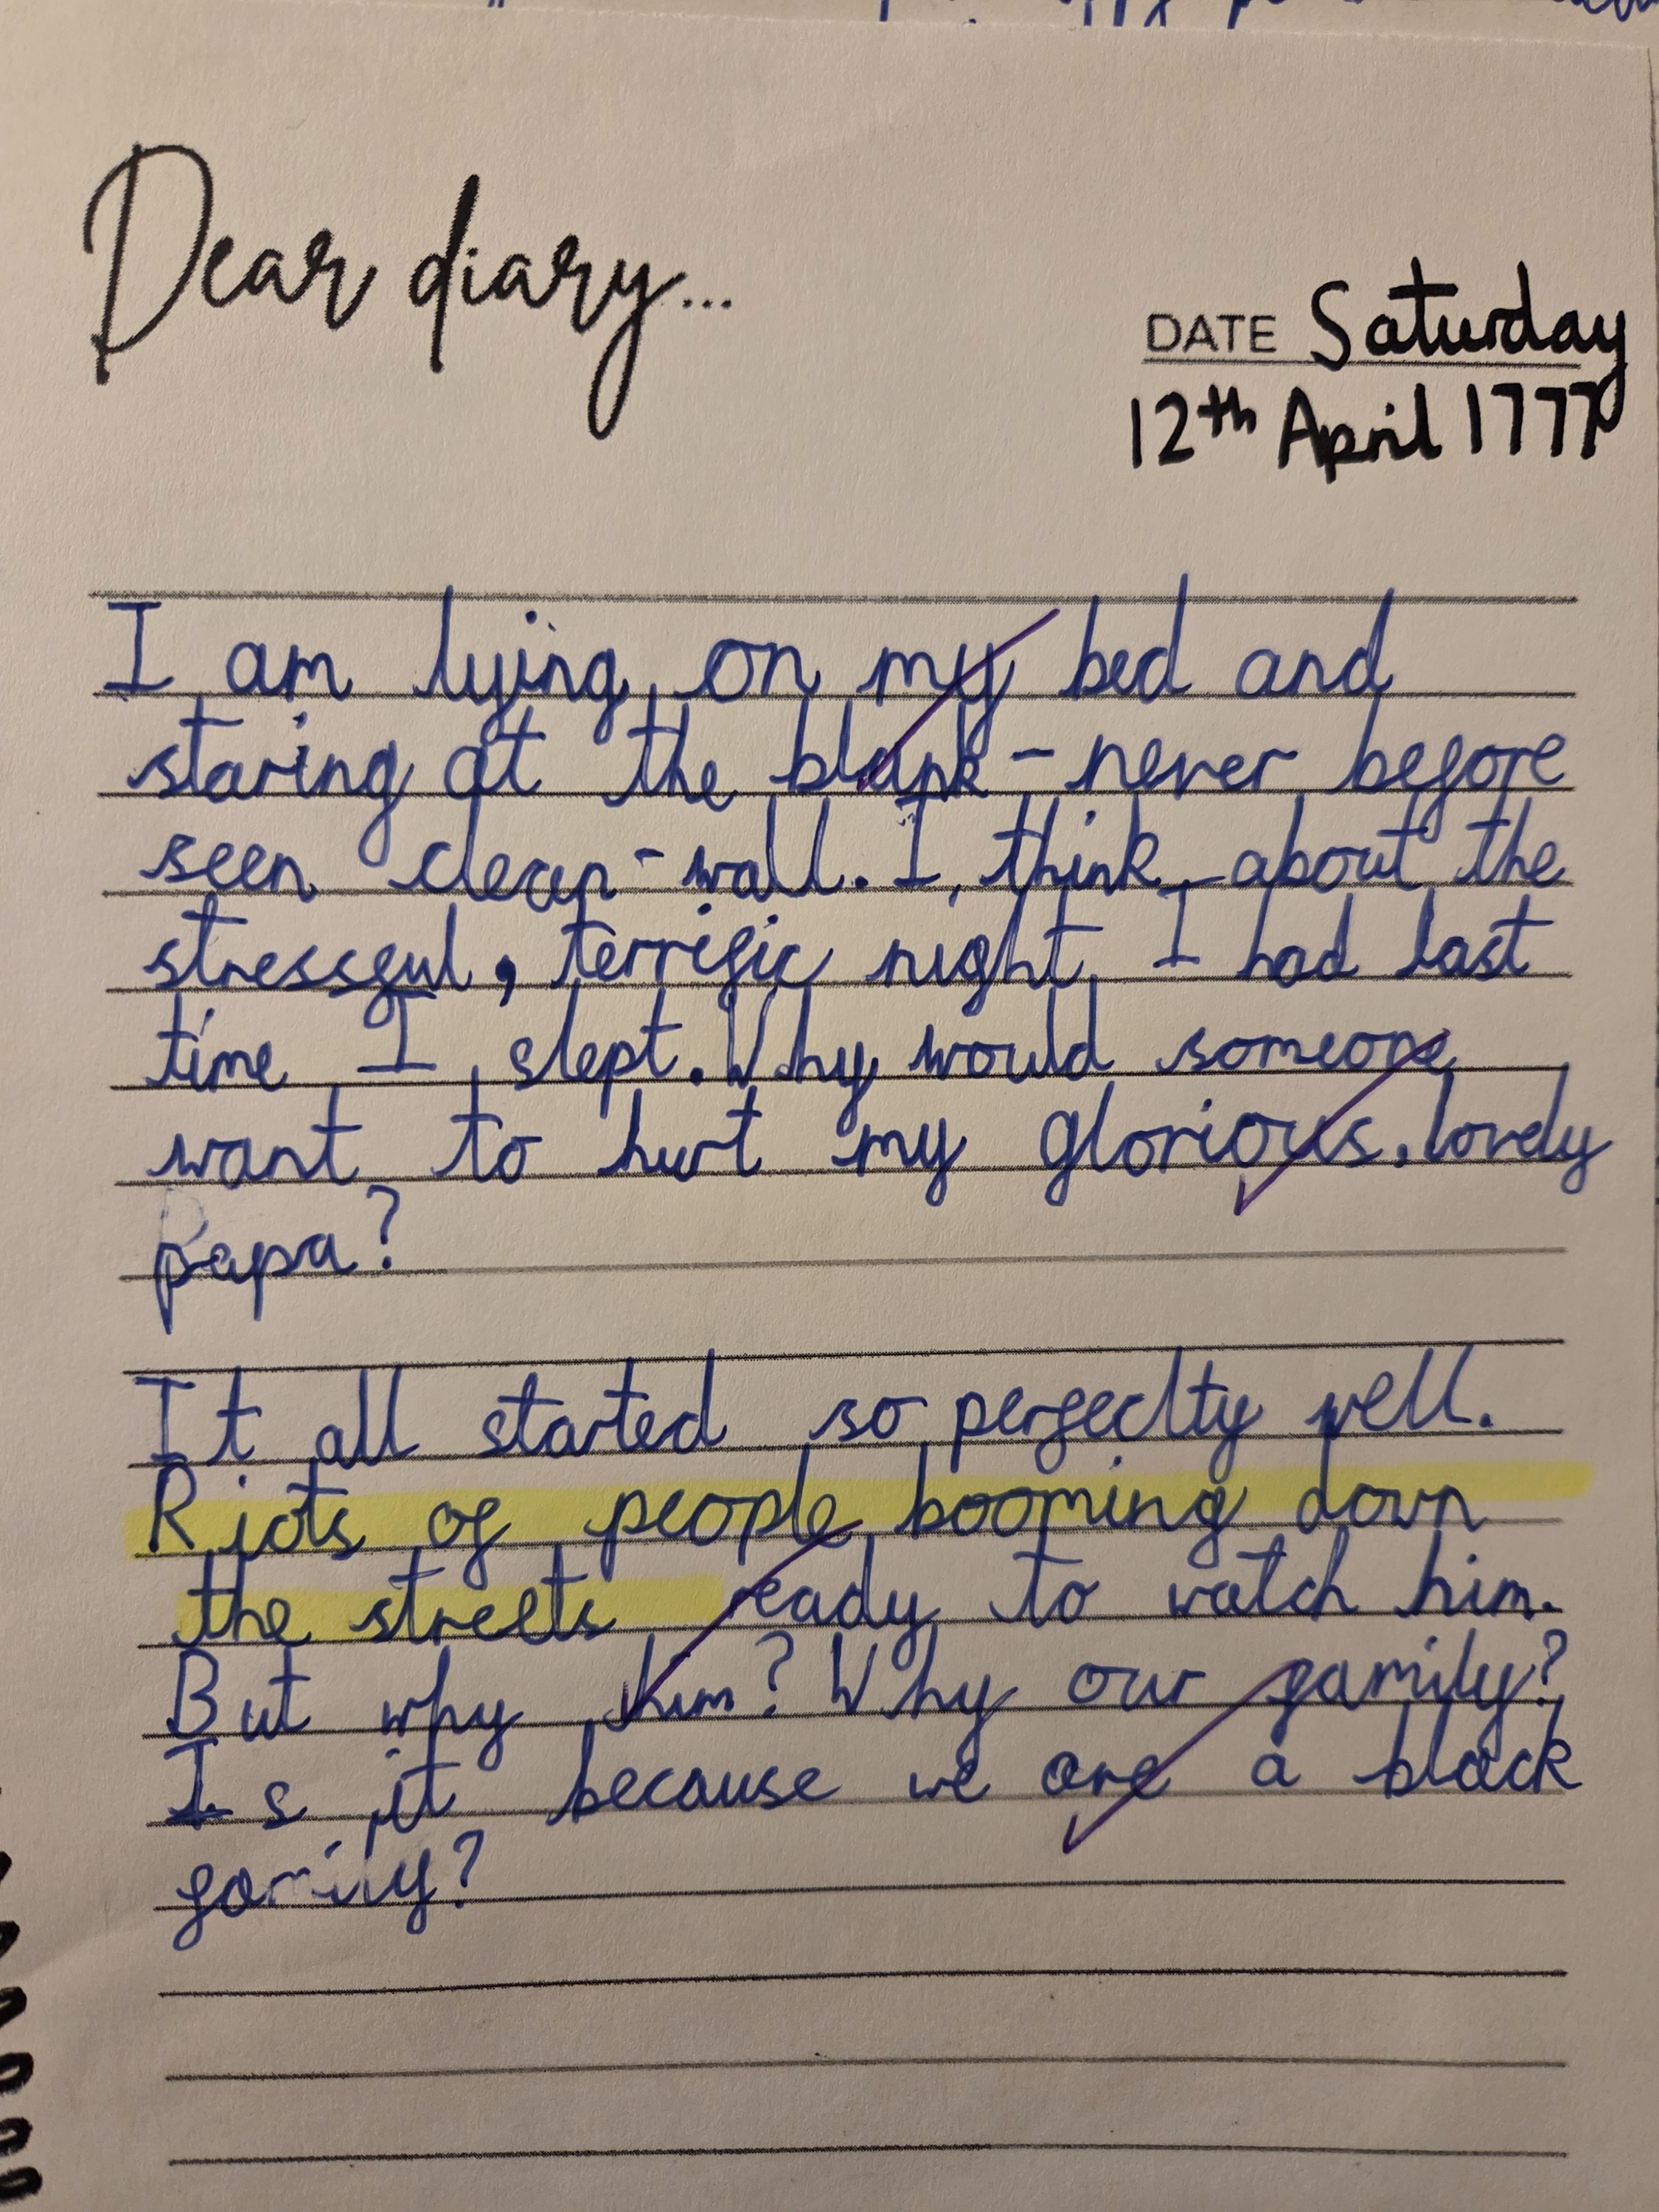 Dear diary...
DATE Saturday
12th April 1777
I am lying on my bed and
staring at the blank - never before
seen clean - wall. I think about the
stressful, terrific night I had last
time I slept. Why would someone
want to hurt my glorious, lovely
papa?
It all started so perfeclty well.
Riots of people booming down
the streets ready to watch him.
But why him? Why our family?
Is it because we are a black
family?